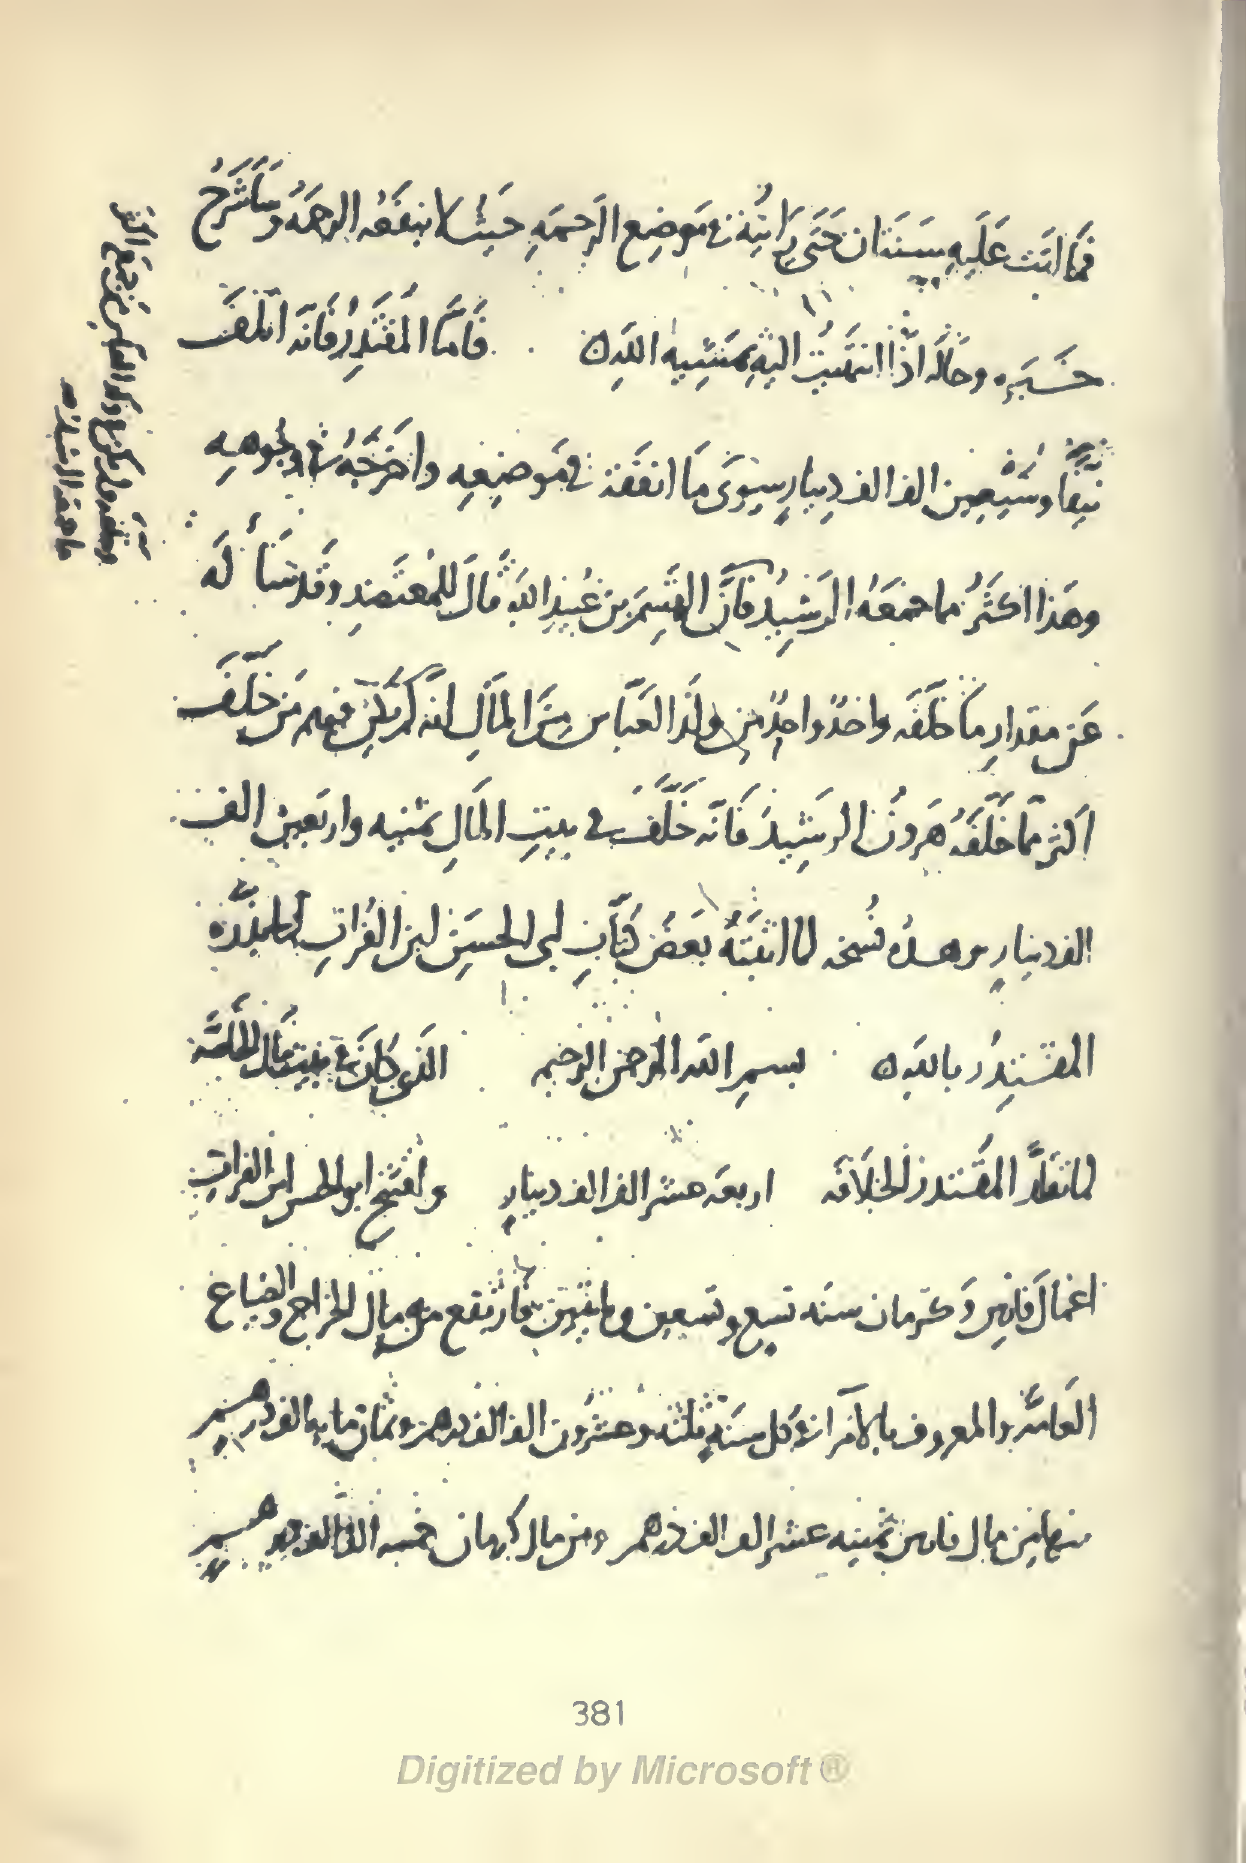 فما اتت عليه سنتان حتى رايته في موضع الرحمه حيث لا تنفعه الرحمه وسأشرح
خبره وحاله اذا انتهيت اليه بمشيه الله فاما المقتدر فانه اتلف
نيفا وسبعين الف الف دينار سوى ما انفقه في موضعه واخرجه في وجوهه
وهذا اكثر مما جمعه الرشيد فان القسم بن عبيد الله قال للمعتضد وقد سأله
عن مقدار ما خلفه واحد واحد من ولد العباس من المال انه لم يكن فيهم من خلف
اكثر مما خلفه هرون الرشيد فانه خلف في بيت المال ثمنيه واربعين الف
الف دينار وهذه نسخه لما اثبته بعض كتاب ابي الحسن ابن الفرات لما بذره
المقتدر بالله بسم الله الرحمن الرحيم الذي كان في بيت مال الخاصه
لما تقلد المقتدر الخلافه اربعه عشر الف الف دينار وافتتح ابو الحسن ابن الفرات
اعمال فارس وكرمان سنه تسع وتسعين ومايتين فارتفع من مال الخراج والضياع
العامه والمعروف بالامرا في كل سنه ثلثه وعشرون الف الف درهم وثمان مايه الف درهم
منها من مال فارس ثمنيه عشر الف الف درهم ومن مال كرمان خمسه الف الف درهم
381
Digitized by Microsoft ®